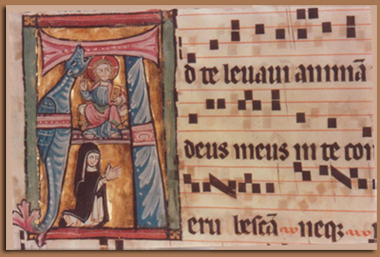 d te leuaui animã
deus meus in te con
eru bescã neqz